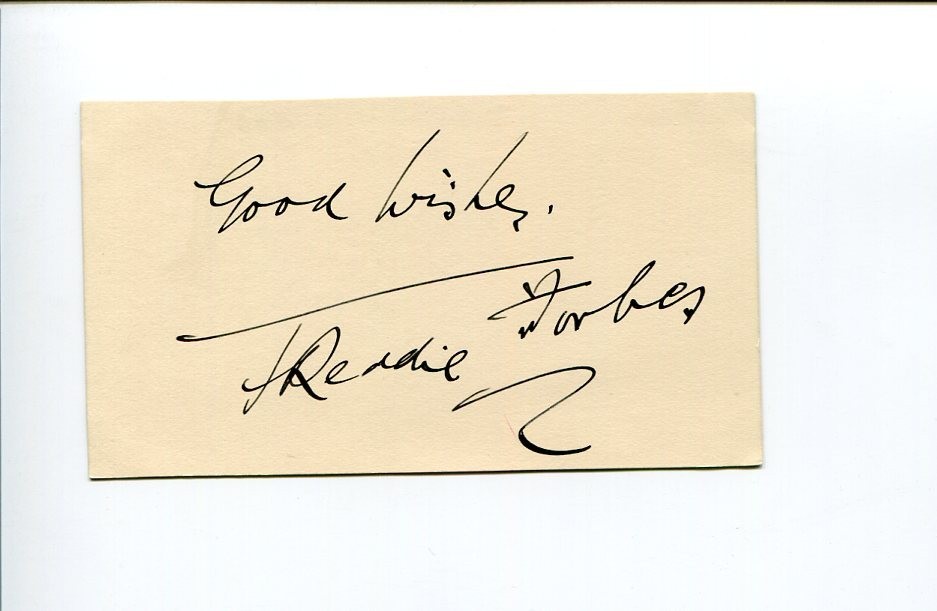 Good Wishes.
Freddie Forbes